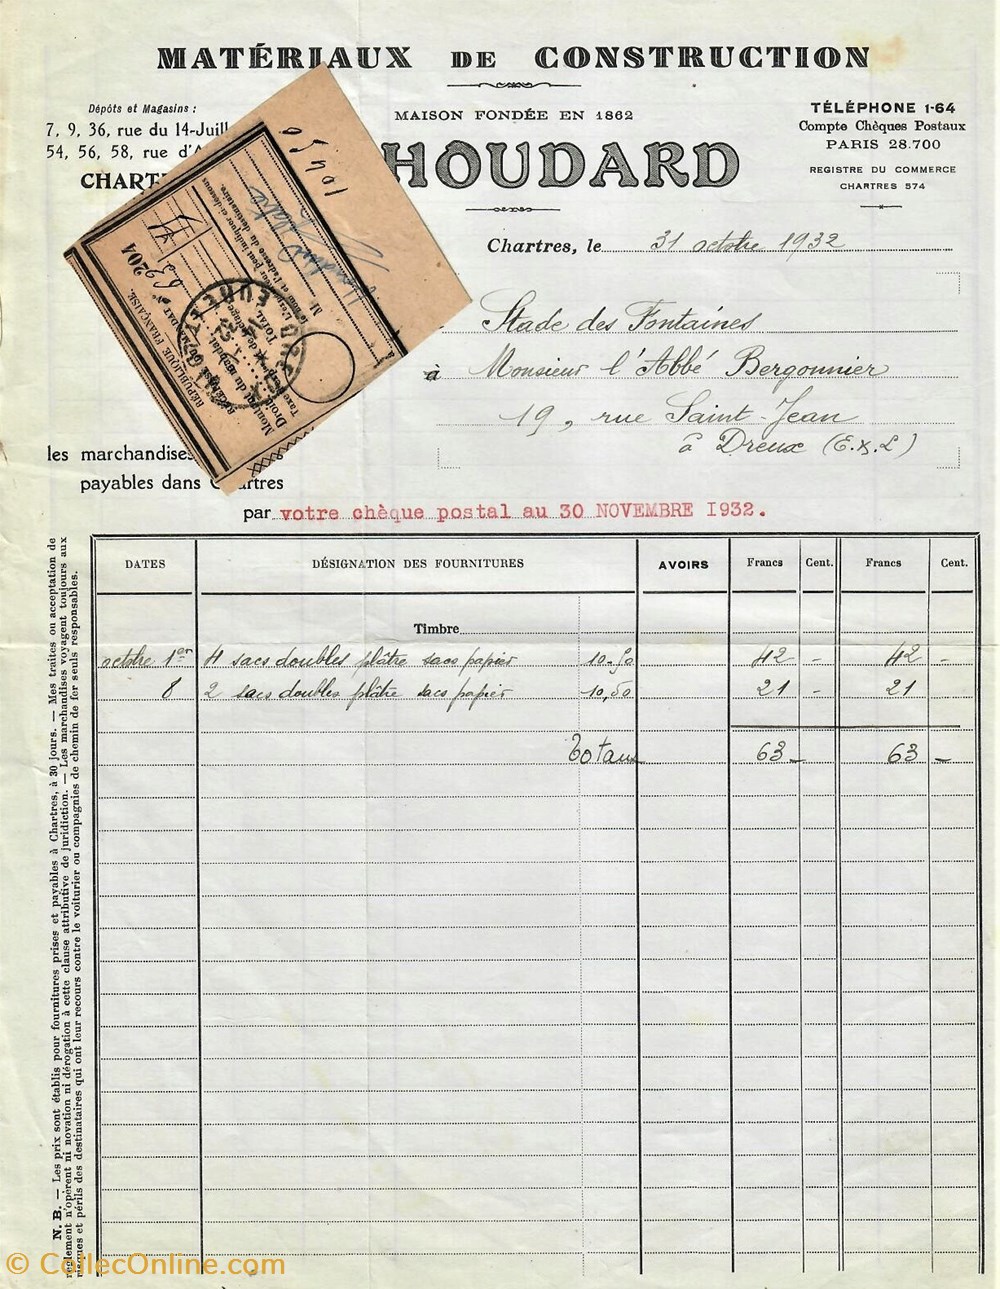 MATÉRIAUX DE CONSTRUCTION
Dépôts et Magasins :
7, 9, 36, rue du 14-Juill
54, 56, 58, rue d'A
CHART
MAISON FONDÉE EN 1862
HOUDARD
TÉLÉPHONE 1-64
Compte Chèques Postaux
PARIS 28.700
REGISTRE DU COMMERCE
CHARTRES 574
Chartres, le 31 octobre 1932
Stade des Fontaines
à Monsieur l'Abbé Bergonnier
19, rue Saint-Jean
à Dreux (E.&.L)
RÉPUBLIQUE FRANÇAISE.
9204
MANDAT
63
Montant du mandat
Droit
Taxe
TOTAL
L'expéditeur peut indiquer ci-dessous
le nom et l'adresse du destinataire.
M
Houdard
les marchandises
payables dans Chartres
par votre chèque postal au 30 NOVEMBRE 1932.
DATES DÉSIGNATION DES FOURNITURES AVOIRS Francs Cent. Francs Cent.
Timbre
octobre 1er 4 sacs doubles plâtre sacs papier 10.50 42 - 42 -
8 2 sacs doubles plâtre sacs papier 10,50 21 - 21
Totaux 63 - 63 -
N. B. — Les prix sont établis pour fournitures prises et payables à Chartres, à 30 jours. — Mes traites ou acceptation de
règlement n'opèrent ni novation ni dérogation à cette clause attributive de juridiction. — Les marchandises voyagent toujours aux
risques et périls des destinataires qui ont leur recours contre le voiturier ou compagnies de chemin de fer seuls responsables.
© CollecOnline.com